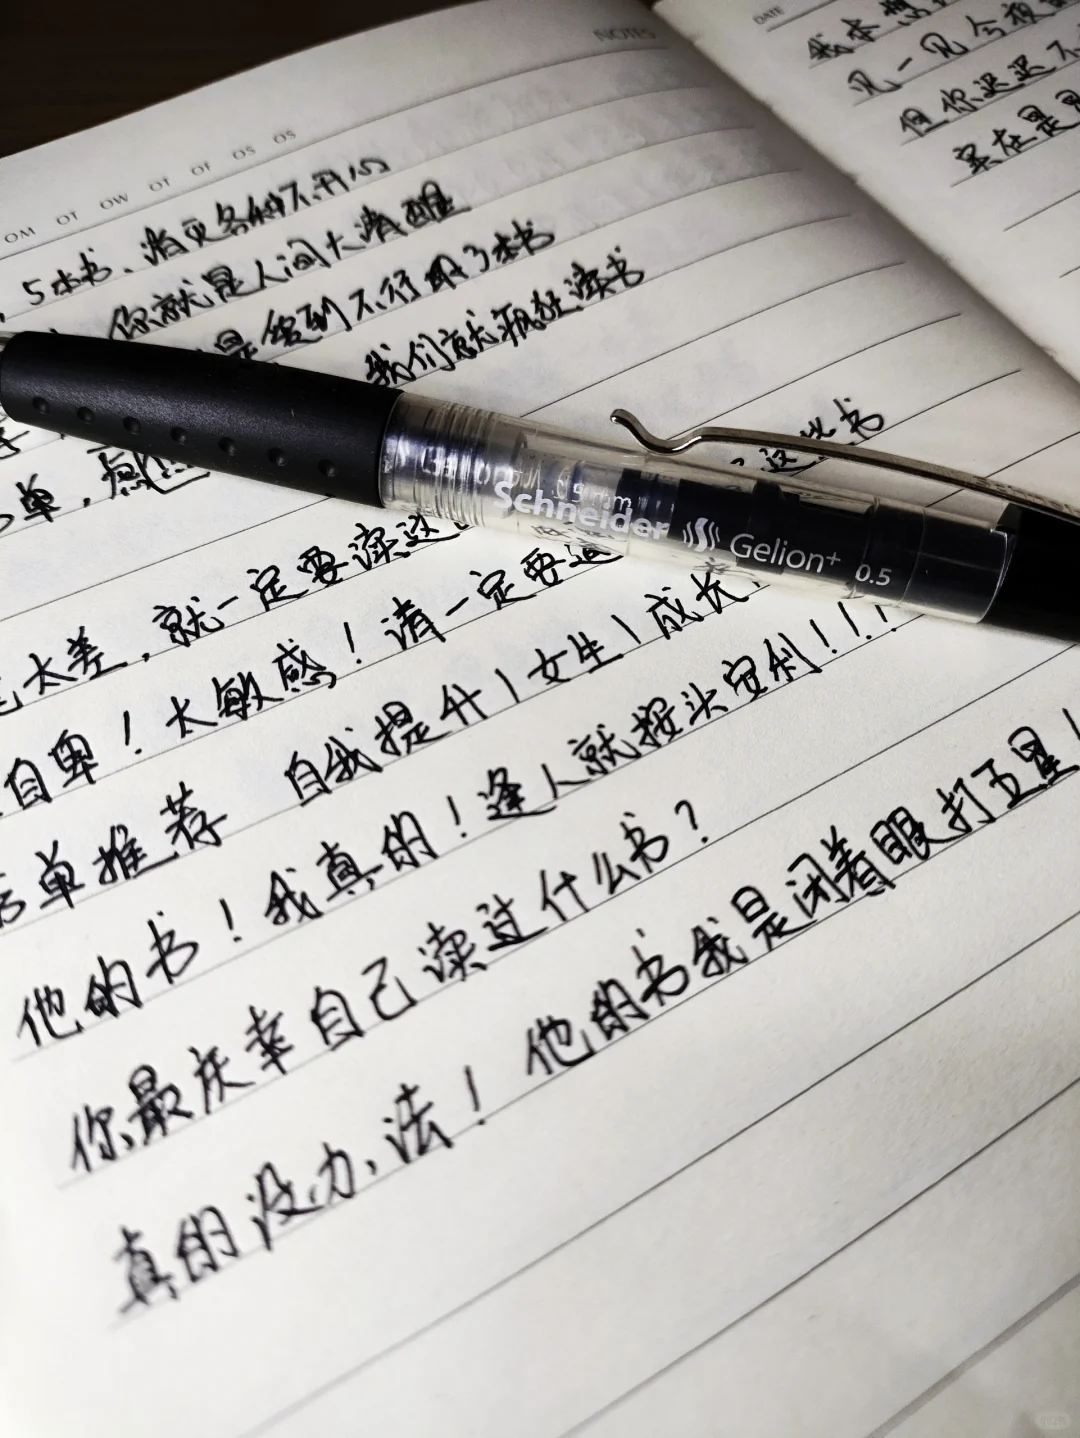 NOTES
OM OT OW OT OF OS OS
5本书、治更各种不开心
你就是人间大清醒
是 到不行的3本书
我们就疯狂读书
这些书
单，
太差，就一定要读这
自卑！太敏感！请一定要
书单推荐 自我提升|女生|成长
他的书！我真的！逢人就按头安利！！！
你最庆幸自己读过什么书？
真的没办法！他的书我是闭着眼打五星！
0.5mm
Schneider Gelion+ 0.5
DATE
我本想
见一见今夜的
但你迟迟不
实在是